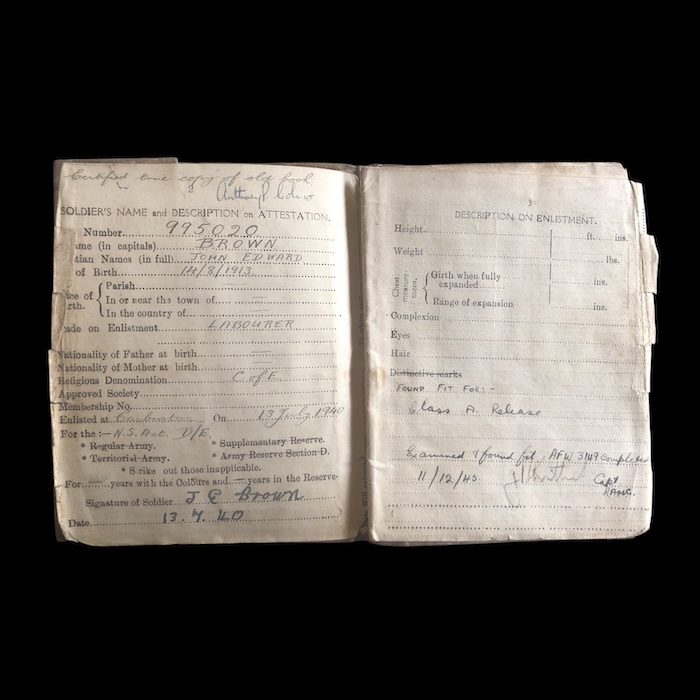 Certified true copy of old book.
2
SOLDIER'S NAME and DESCRIPTION on ATTESTATION.
Number 995020
ame (in capitals) BROWN
tian Names (in full) JOHN EDWARD
of Birth 14/8/1913
ce of rth.
Parish
In or near the town of
In the country of
ade on Enlistment LABOURER
Nationality of Father at birth
Nationality of Mother at birth
Religious Denomination C of E
Approved Society
Membership No.
Enlisted at On 13 July 1940
For the :— N.S. Act. D/E
* Regular Army. * Supplementary Reserve.
* Territorial Army. * Army Reserve Section D.
* Strike out those inapplicable.
For years with the Colours and years in the Reserve
Signature of Soldier J E Brown
Date 13.7.40
3
DESCRIPTION ON ENLISTMENT.
Height ft. ins.
Weight lbs.
Chest measurement.
Girth when fully expanded ins.
Range of expansion ins.
Complexion
Eyes
Hair
Distinctive marks
FOUND FIT FOR:-
Class A. Release
Examined & found fit, AFW 3149 Completed
11/12/45 Capt
RAMC.